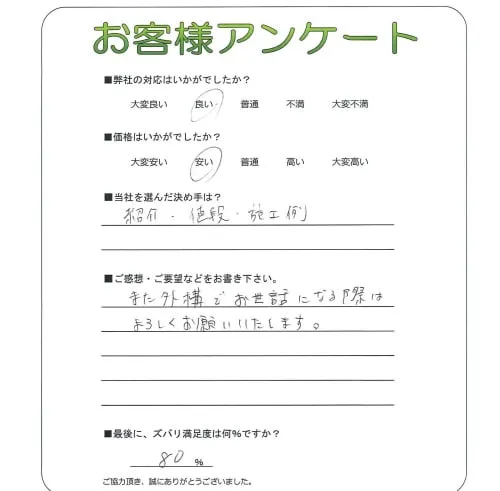 お客様アンケート
■弊社の対応はいかがでしたか?
大変良い 良い 普通 不満 大変不満
■価格はいかがでしたか?
大変安い 安い 普通 高い 大変高い
■当社を選んだ決め手は?
紹介・値段・施工例
■ご感想・ご要望などをお書き下さい。
また外構でお世話になる際は
よろしくお願いいたします。
■最後に、ズバリ満足度は何%ですか?
80 %
ご協力頂き、誠にありがとうございました。